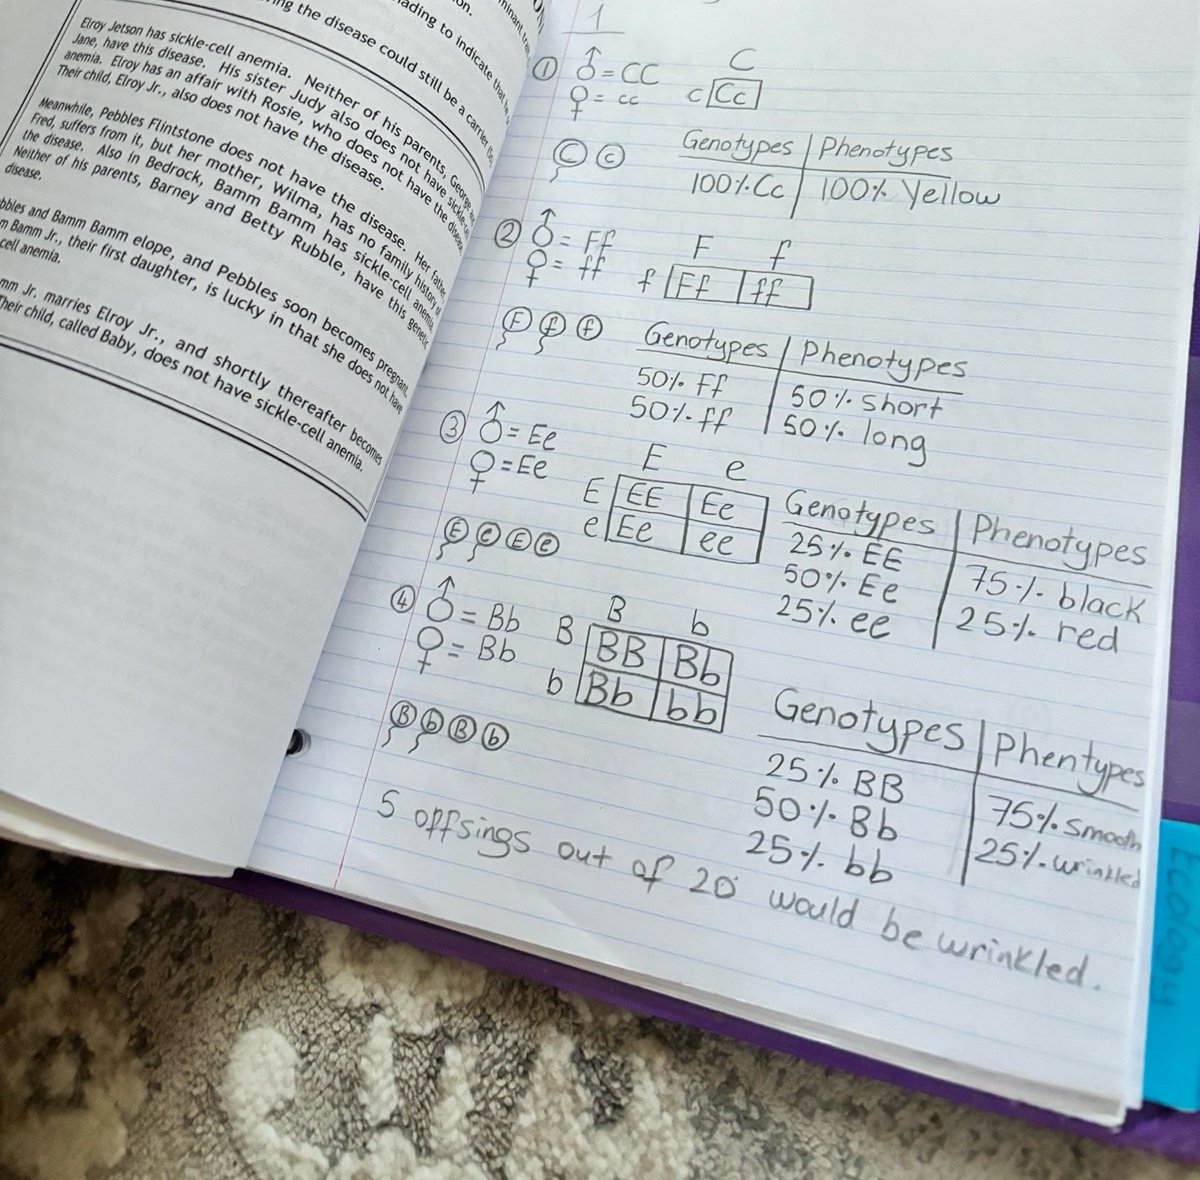 on.
ading to indicate that
ing the disease could still be a carrier
Elroy Jetson has sickle-cell anemia. Neither of his parents, George
Jane, have this disease. His sister Judy also does not have sickle-
anemia. Elroy has an affair with Rosie, who does not have the disease
Their child, Elroy Jr., also does not have the disease.
Meanwhile, Pebbles Flintstone does not have the disease. Her father,
Fred, suffers from it, but her mother, Wilma, has no family history of
the disease. Also in Bedrock, Bamm Bamm has sickle-cell anemia.
Neither of his parents, Barney and Betty Rubble, have this genetic
disease.
bbles and Bamm Bamm elope, and Pebbles soon becomes pregnant.
m Bamm Jr., their first daughter, is lucky in that she does not have
cell anemia.
mm Jr. marries Elroy Jr., and shortly thereafter becomes
Their child, called Baby, does not have sickle-cell anemia.
1
① ♂ = CC
♀ = cc
C
c Cc
C c
Genotypes Phenotypes
100% Cc 100% Yellow
② ♂ = Ff
♀ = ff
F f
f Ff ff
F f f
Genotypes Phenotypes
50% Ff 50% short
50% ff 50% long
③ ♂ = Ee
♀ = Ee
E e
E EE Ee
e Ee ee
E e E e
Genotypes Phenotypes
25% EE 75% black
50% Ee 25% red
25% ee
④ ♂ = Bb
♀ = Bb
B b
B BB Bb
b Bb bb
B b B b
Genotypes Phentypes
25% BB 75% smooth
50% Bb 25% wrinkled
25% bb
5 offsings out of 20 would be wrinkled.
Ecology